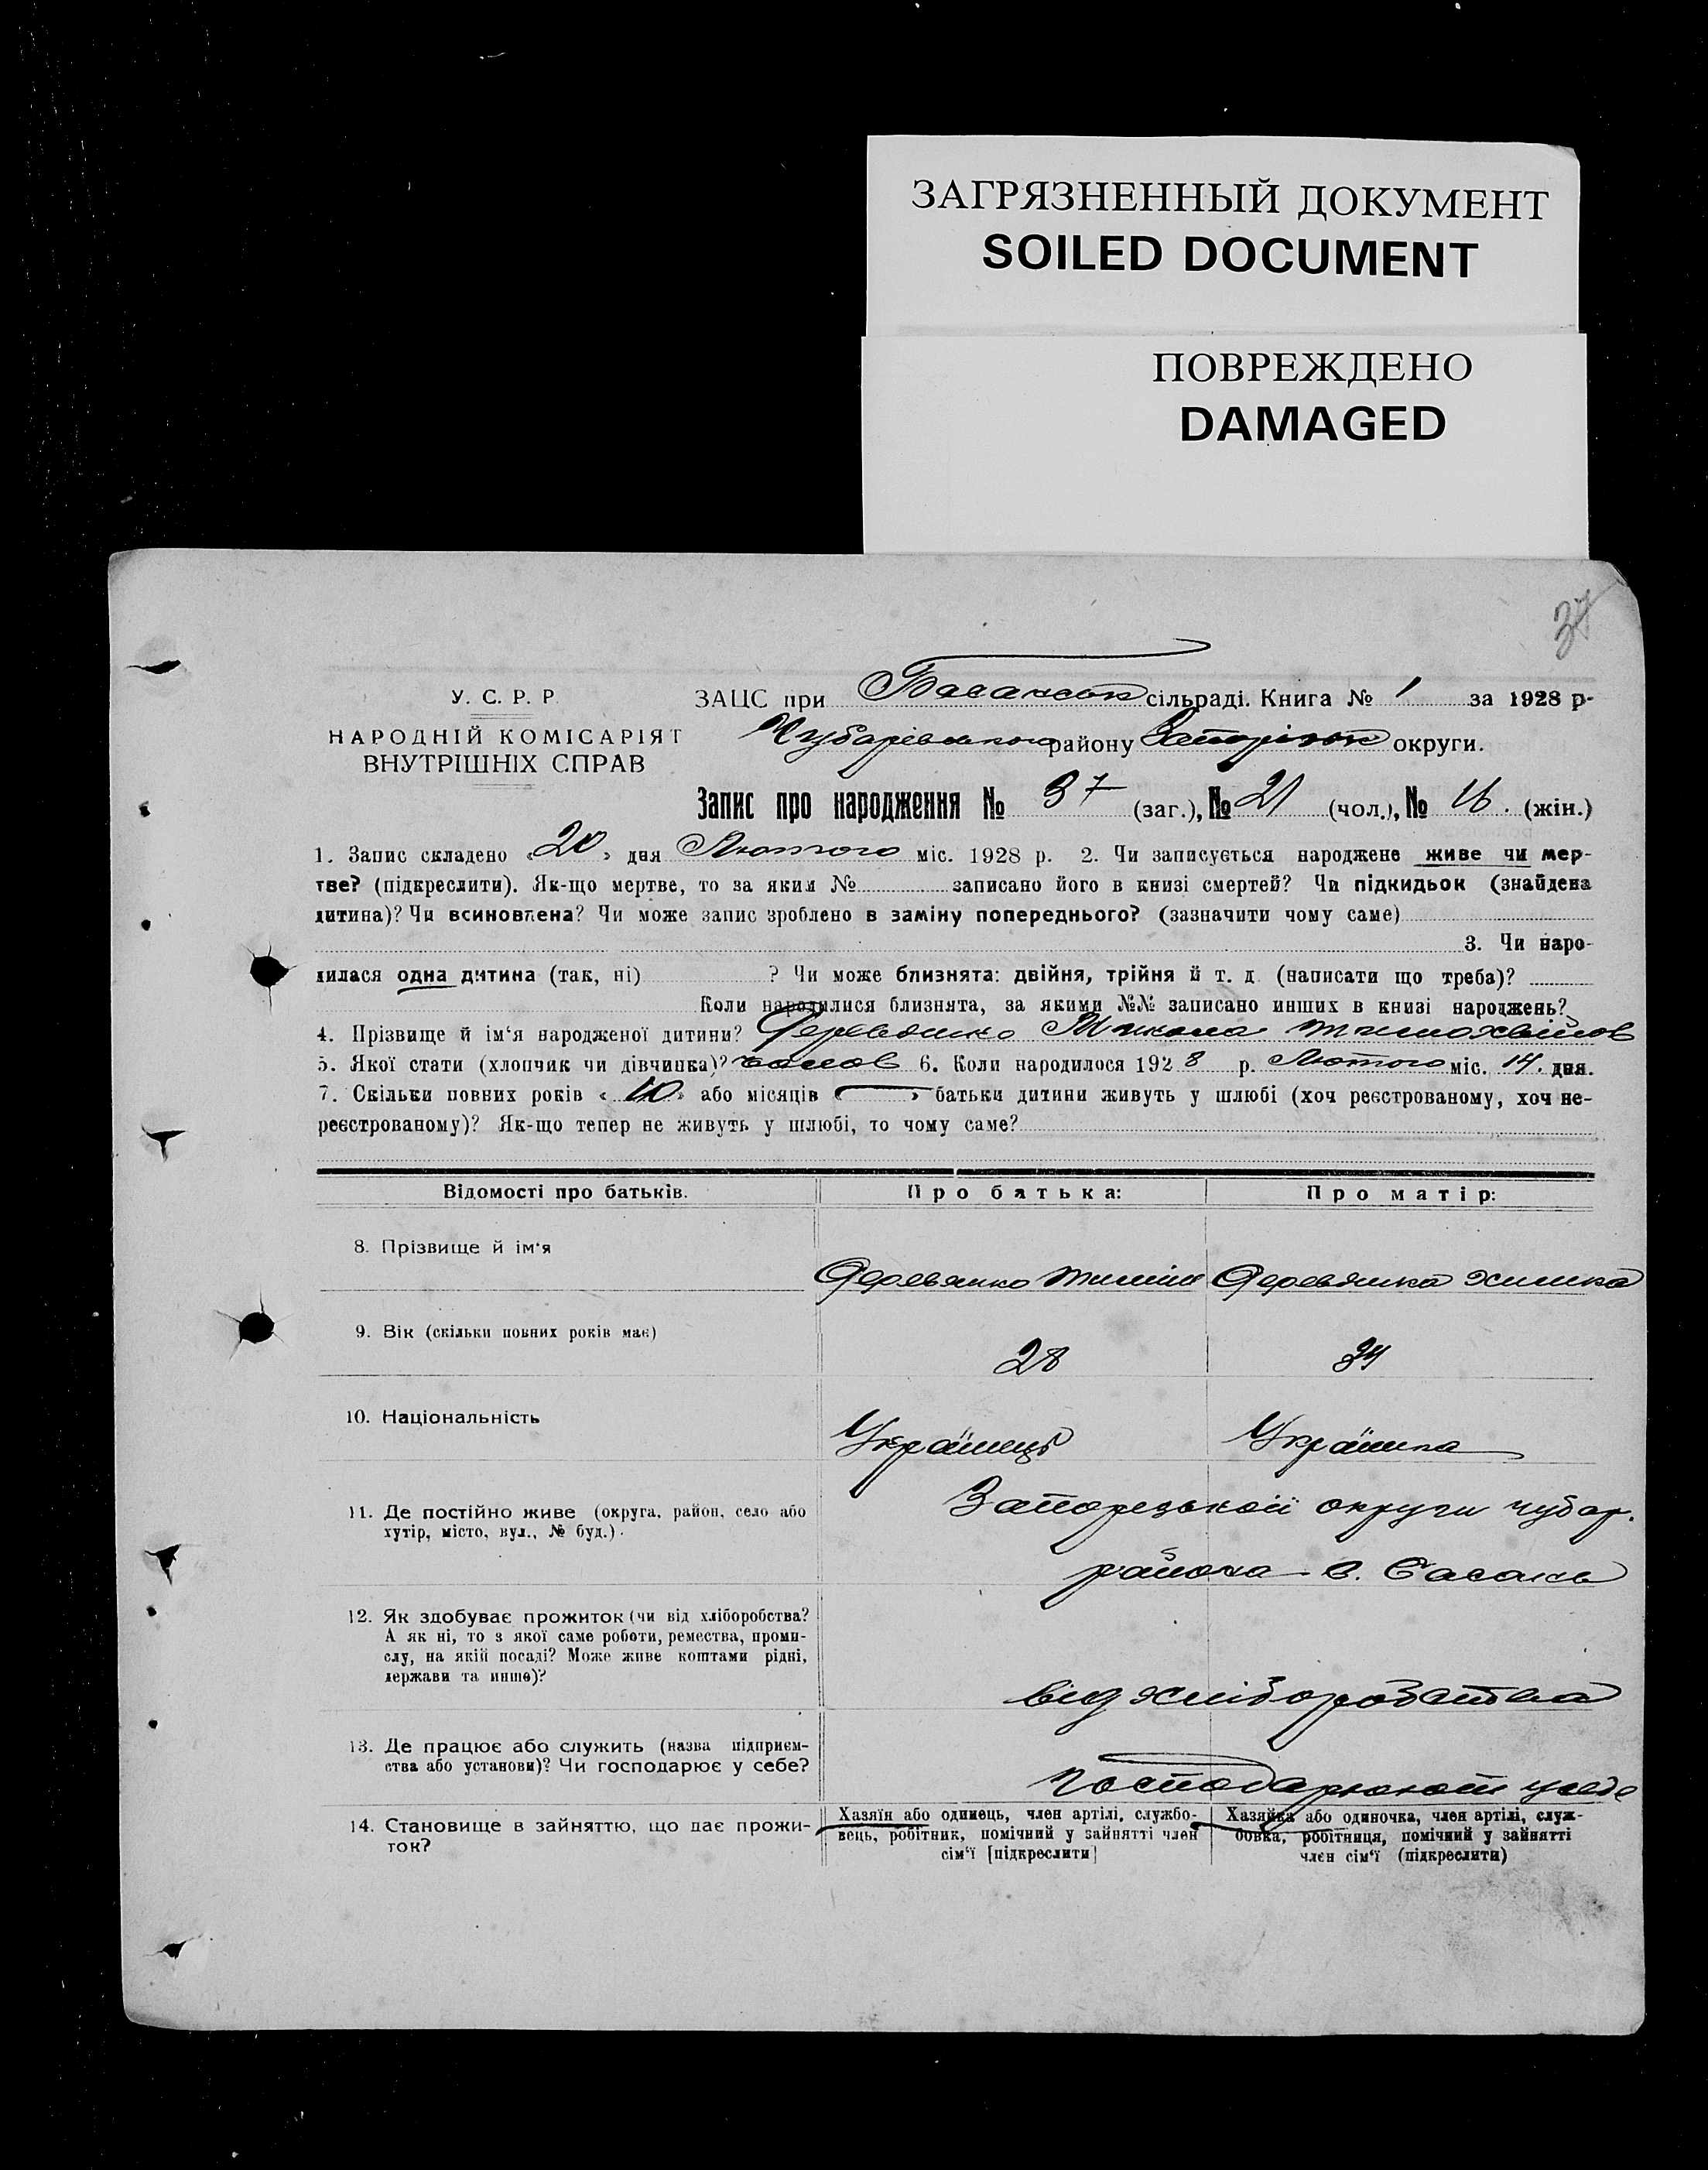 ЗАГРЯЗНЕННЫЙ ДОКУМЕНТ
SOILED DOCUMENT
ПОВРЕЖДЕНО
DAMAGED
37
У. С. Р. Р.
НАРОДНІЙ КОМІСАРІЯТ
ВНУТРІШНІХ СПРАВ
ЗАЦС при Басанськ сільраді. Книга № 1 за 1928 р.
Чубарівського району Запоріжськ округи.
Запис про народження № 37 (заг.), № 21 (чол.), № 16. (жін.)
1. Запис складено « 20 » дня Лютого міс. 1928 р. 2. Чи записується народжене живе чи мер-
тве? (підкреслити). Як-що мертве, то за яким № записано його в книзі смертей? Чи підкидьок (знайдена
дитина)? Чи всиновлена? Чи може запис зроблено в заміну попереднього? (зазначити чому саме)
3. Чи наро-
дилася одна дитина (так, ні) ? Чи може близнята: двійня, трійня й т. д. (написати що треба)?
Коли народилися близнята, за якими №№ записано инших в книзі народжень?
4. Прізвище й ім‘я народженої дитини? Деревянко Микола
5. Якої стати (хлопчик чи дівчинка)? 6. Коли народилося 192 8 р. Лютого міс. 14. дня.
7. Скільки повних років « 10 » або місяців « — » батьки дитини живуть у шлюбі (хоч реєстрованому, хоч не-
реєстрованому)? Як-що тепер не живуть у шлюбі, то чому саме?
Відомості про батьків. Про батька: Про матір:
8. Прізвище й ім‘я
Деревянко Деревянко Химка
9. Вік (скільки повних років має)
28 34
10. Національність
Українець Українка
11. Де постійно живе (округа, район, село або
хутір, місто, вул., № буд.).
Запорезькой округи чубар.
района с. Басань
12. Як здобуває прожиток (чи від хліборобства?
А як ні, то з якої саме роботи, ремества, проми-
слу, на якій посаді? Може живе коштами рідні,
держави та инше)?
від хліборобства
13. Де працює або служить (назва підприєм-
ства або установи)? Чи господарює у себе?
господарюют усебе
14. Становище в зайняттю, що дає прожи-
ток?
Хазяїн або одинець, член артілі, службо-
вець, робітник, помічний у зайнятті член
сім‘ї [підкреслити]
Хазяйка або одиночка, член артілі, служ-
бовка, робітниця, помічний у зайнятті
член сім‘ї (підкреслити)